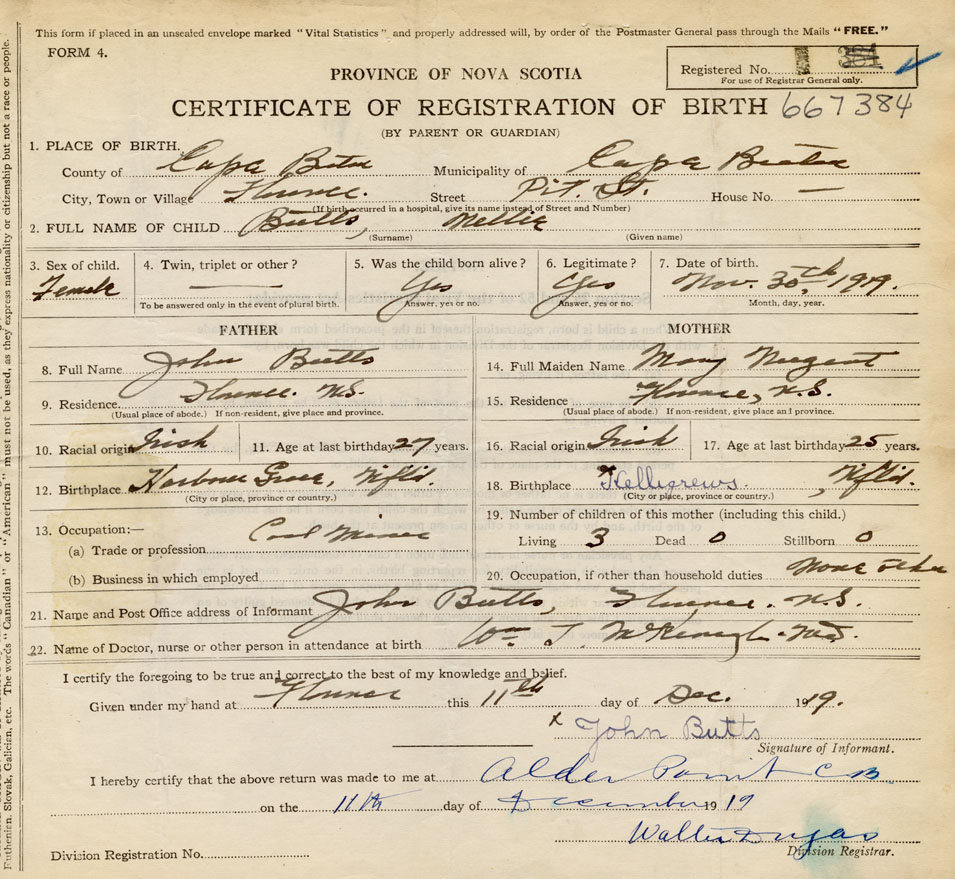 This form if placed in an unsealed envelope marked "Vital Statistics" and properly addressed will, by order of the Postmaster General pass through the Mails "FREE."
FORM 4.
Registered No. 384
For use of Registrar General only.
PROVINCE OF NOVA SCOTIA
CERTIFICATE OF REGISTRATION OF BIRTH 667384
(BY PARENT OR GUARDIAN)
1. PLACE OF BIRTH.
County of Cape Breton Municipality of Cape Breton
City, Town or Village Florence. Street Pit. St. House No. —
(If birth occurred in a hospital, give its name instead of Street and Number)
2. FULL NAME OF CHILD Butts, Nellie
(Surname) (Given name)
3. Sex of child. 4. Twin, triplet or other? 5. Was the child born alive? 6. Legitimate? 7. Date of birth.
Female — — Yes Yes Nov. 30th, 1919.
To be answered only in the event of plural birth. Answer, yes or no. Answer, yes or no. Month, day, year.
FATHER
8. Full Name John Butts
9. Residence. Florence. N.S.
(Usual place of abode.) If non-resident, give place and province.
10. Racial origin Irish 11. Age at last birthday 27 years.
12. Birthplace Harbour Grace, Nfld.
(City or place, province or country.)
13. Occupation:—
(a) Trade or profession Coal Miner
(b) Business in which employed
MOTHER
14. Full Maiden Name Mary Nugent
15. Residence Florence, N.S.
(Usual place of abode.) If non-resident, give place and province.
16. Racial origin Irish 17. Age at last birthday 25 years.
18. Birthplace Kelligrews, Nfld.
(City or place, province or country.)
19. Number of children of this mother (including this child.)
Living 3 Dead 0 Stillborn 0
20. Occupation, if other than household duties None other
21. Name and Post Office address of Informant John Butts, Florence. N.S.
22. Name of Doctor, nurse or other person in attendance at birth Wm J. McKeough. M.D.
I certify the foregoing to be true and correct to the best of my knowledge and belief.
Given under my hand at Florence this 11th day of Dec. 1919.
x John Butts
Signature of Informant.
I hereby certify that the above return was made to me at Alder Point C.B.
on the 11th day of December 1919
Walter Dugas
Division Registrar.
Division Registration No.
Ruthenian, Slovak, Galician, etc. The words "Canadian" or "American" must not be used, as they express nationality or citizenship but not a race or people.